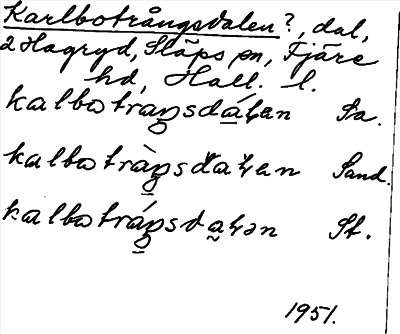 Karlbotrångsdalen?, dal,
2 Hagryd, Släps sn, Fjäre
hd, Hall. l.
kalbotràŋsdáɫan Sa.
kalbotràŋsdaɫan Sand.
kalbotráŋsdaɫən St.
1951.